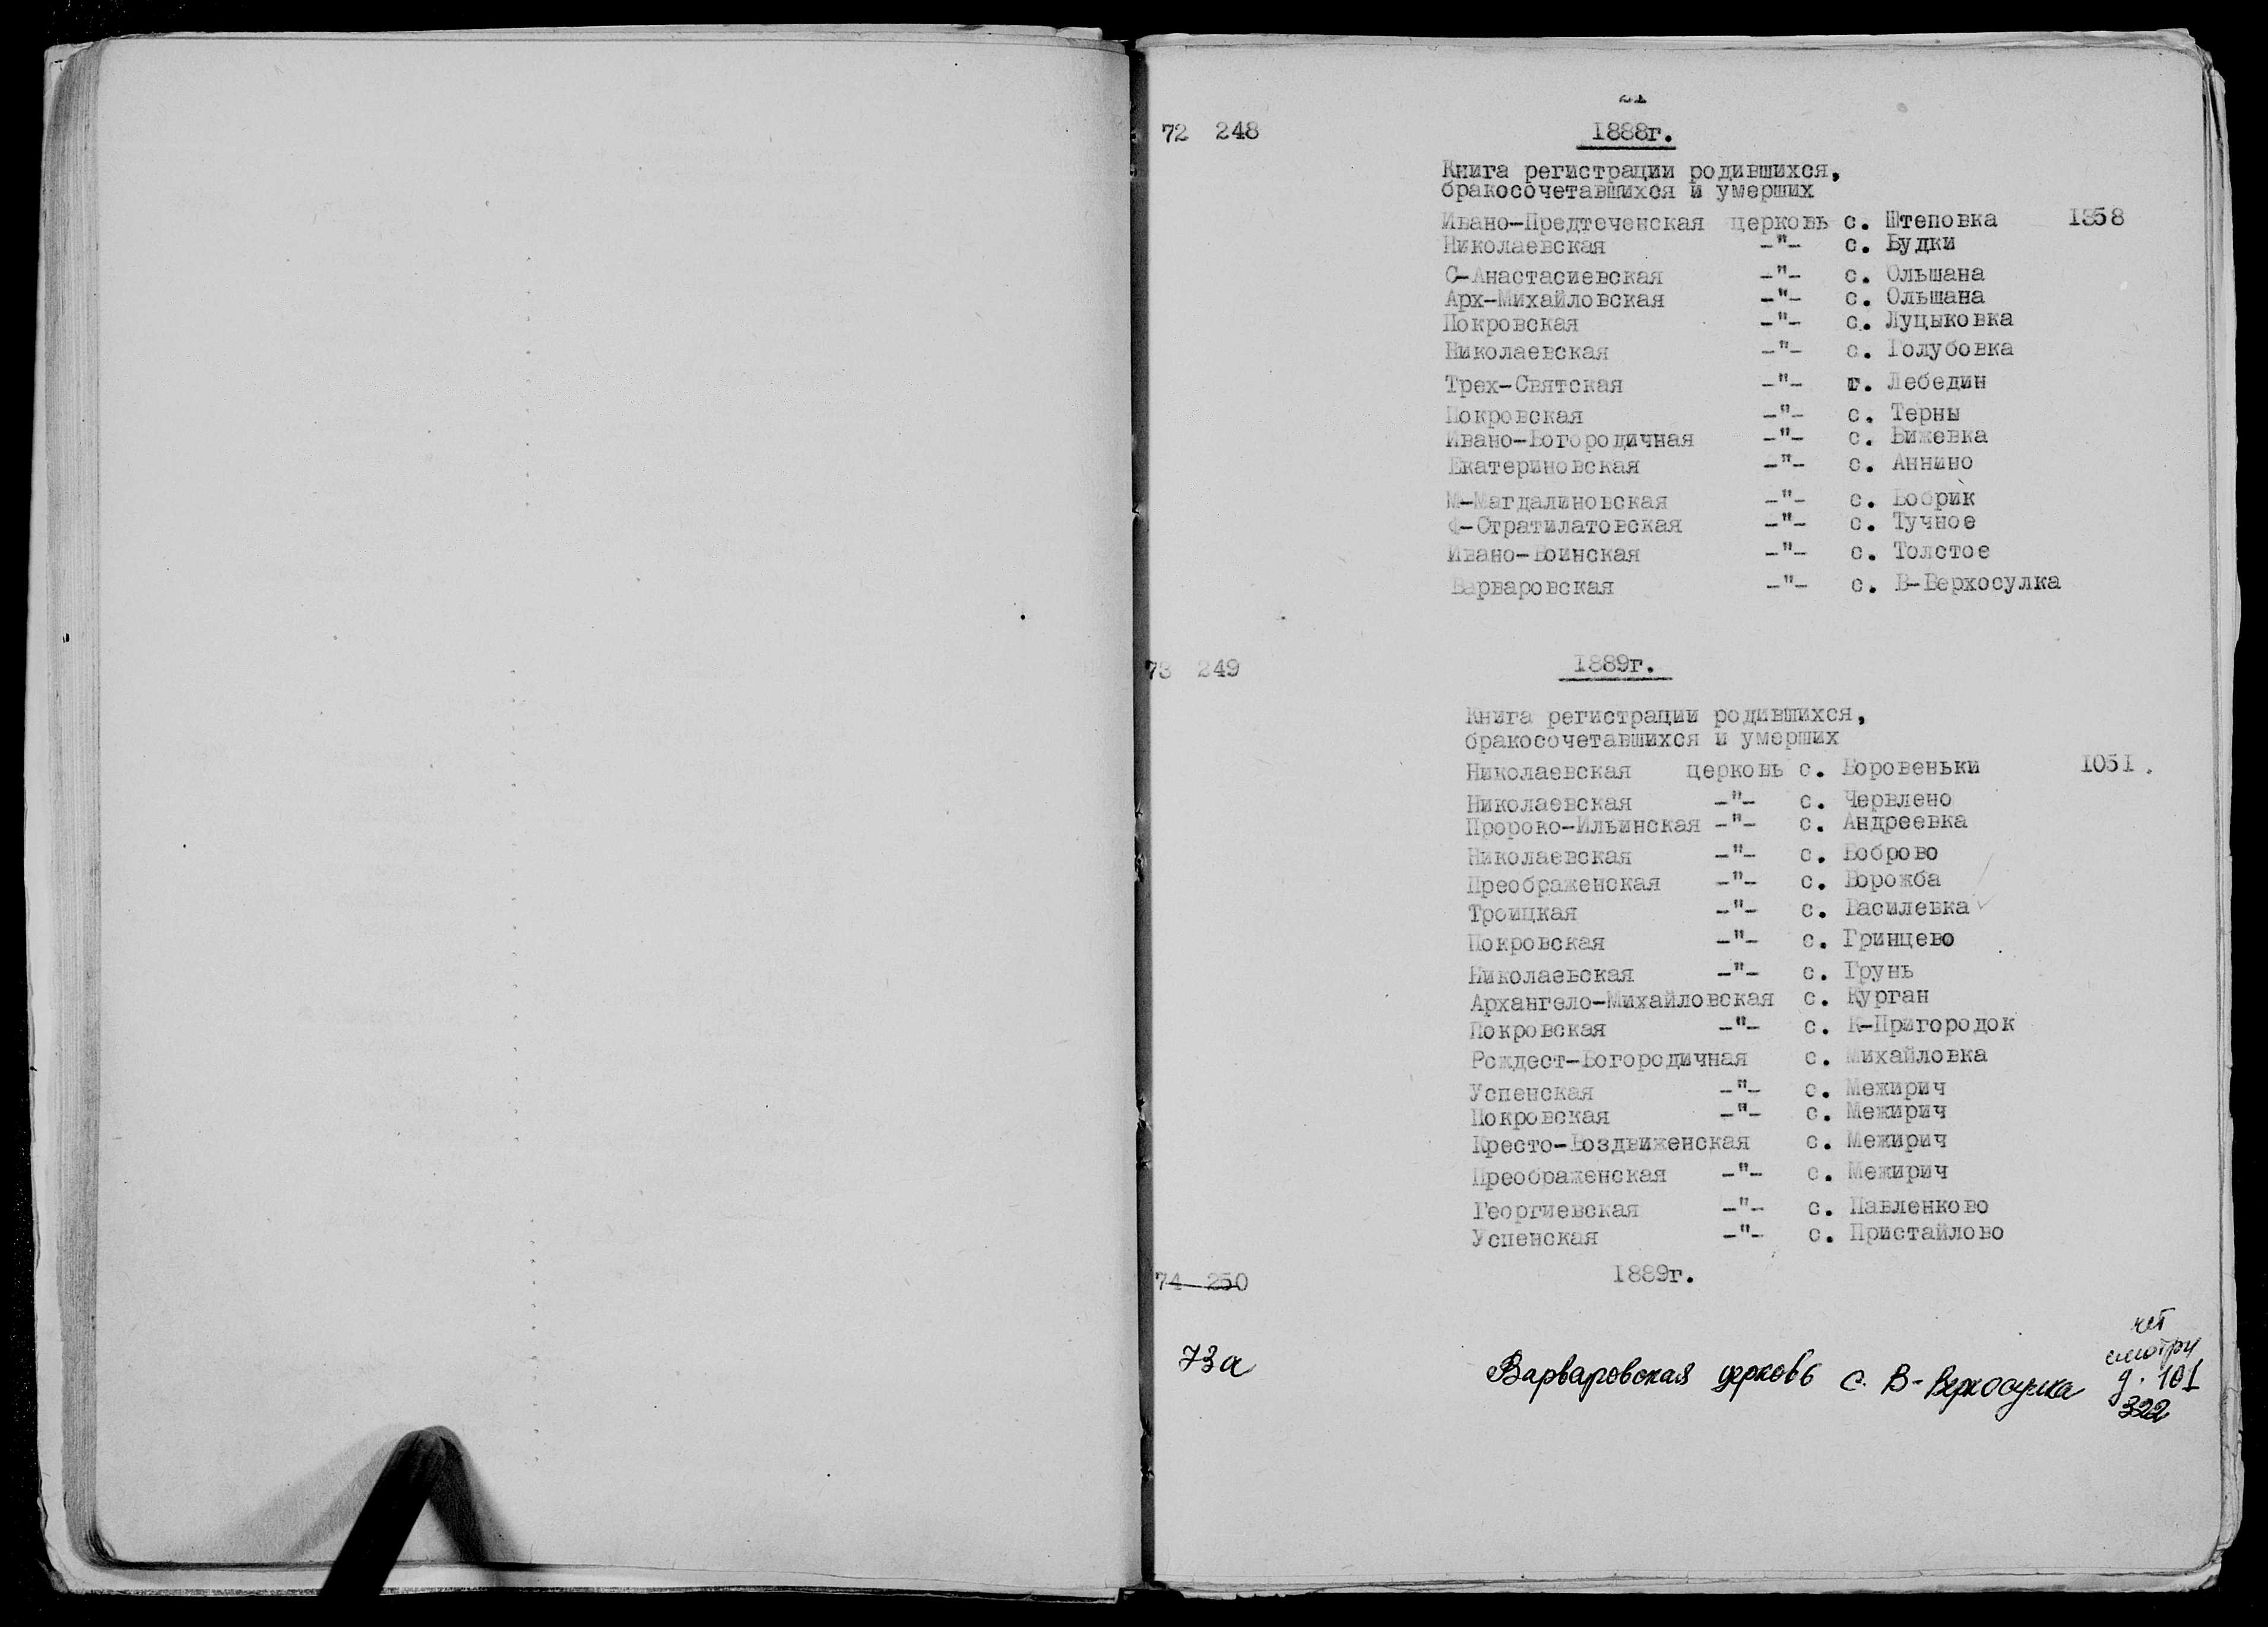 21
72 248 1888г.
Книга регистрации родившихся,
бракосочетавшихся и умерших
Ивано-Предтеченская церковь с. Штеповка 1358
Николаевская -"- с. Будки
С-Анастасиевская -"- с. Ольшана
Арх-Михайловская -"- с. Ольшана
Покровская -"- с. Луцыковка
Николаевская -"- с. Голубовка
Трех-Святская -"- г. Лебедин
Покровская -"- с. Терны
Ивано-Богородичная -"- с. Бижевка
Екатериновская -"- с. Аннино
М-Магдалиновская -"- с. Бобрик
Ф-Стратилатовская -"- с. Тучное
Ивано-Воинская -"- с. Толстое
Варваровская -"- с. В-Верхосулка
73 249 1889г.
Книга регистрации родившихся,
бракосочетавшихся и умерших
Николаевская церковь с. Боровеньки 1051.
Николаевская -"- с. Червлено
Пророко-Ильинская -"- с. Андреевка
Николаевская -"- с. Боброво
Преображенская -"- с. Ворожба
Троицкая -"- с. Василевка
Покровская -"- с. Гринцево
Николаевская -"- с. Грунь
Архангело-Михайловская с. Курган
Покровская -"- с. К-Пригородок
Рождест-Богородичная с. Михайловка
Успенская -"- с. Межирич
Покровская -"- с. Межирич
Кресто-Воздвиженская с. Межирич
Преображенская -"- с. Межирич
Георгиевская -"- с. Павленково
Успенская -"- с. Пристайлово
74 250 1889г.
73а Варваровская церковь с. В-Верхосулка
нет
смотри
д. 101
322